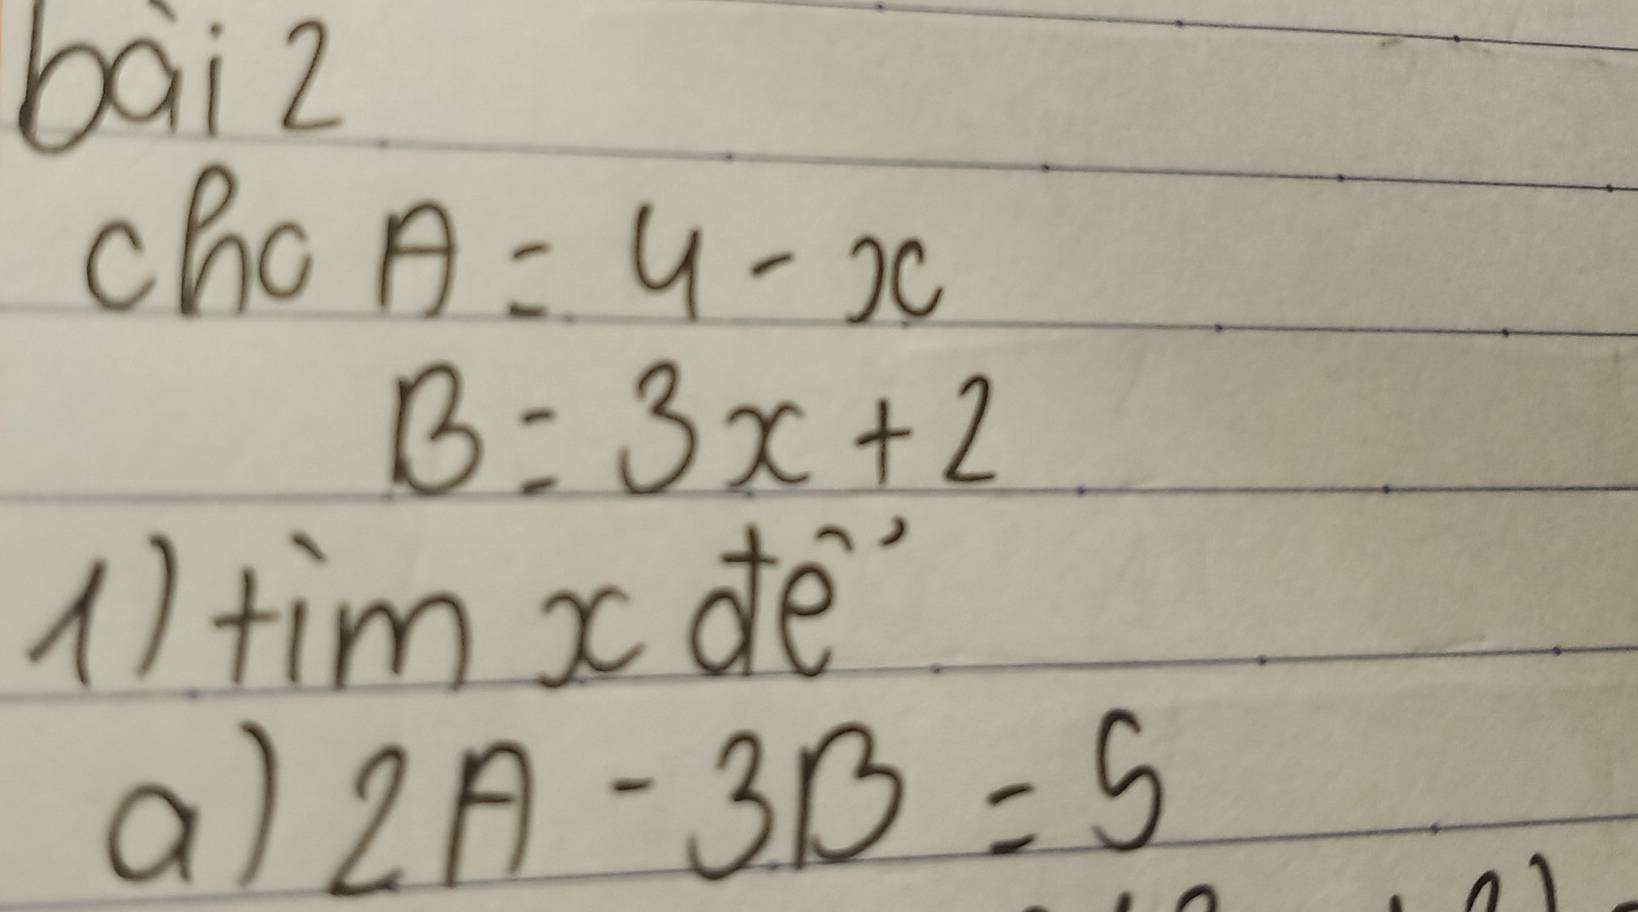 bài 2
cho A = 4 - x
B = 3x + 2
1) tìm x để
a) 2A - 3B = 5